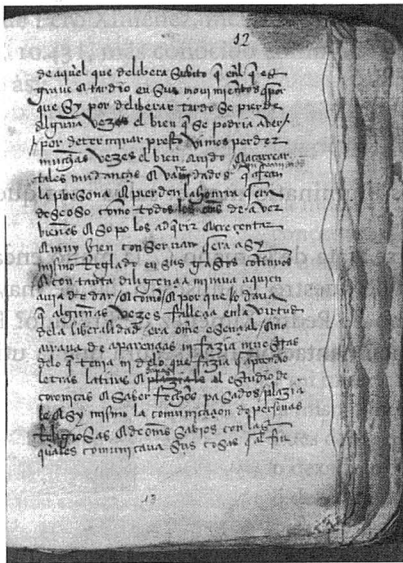 12
de aquel que delibera subito q̃ enl q̃ es
grave & tardio en sus movimientos por
que sy por deliberar tarde se pierde
alguna vezes el bien q̃ se podria aver /
/ por determinar presto vimos perder
muchas vezes el bien avido / & acarrear
tales mudanças & variedades q̃
la persona & pierden la honrra q̃ era
deseoso como todos los de aver
bienes & sopo los adqrir & acreçentar
& muy bien conservar q̃ era asy
mismo reglado en sus gastos continuos
& con tanta diligençia mirava aquien
avia de dar / & como / & por que lo dava
q̃ algunas vezes falleçia en la virtud
dela liberalidad era ome esençial / & no
curava de aparençias ni fazia muestras
delo q̃ tenia ni delo que fazia
letras latinas & plaziale el estudio de
coronicas & saber fechos pasados / plazia
le asy mismo la comunicaçion de personas
religiosas & de omes sabios con las
quales comunicava sus cosas q̃ al fin